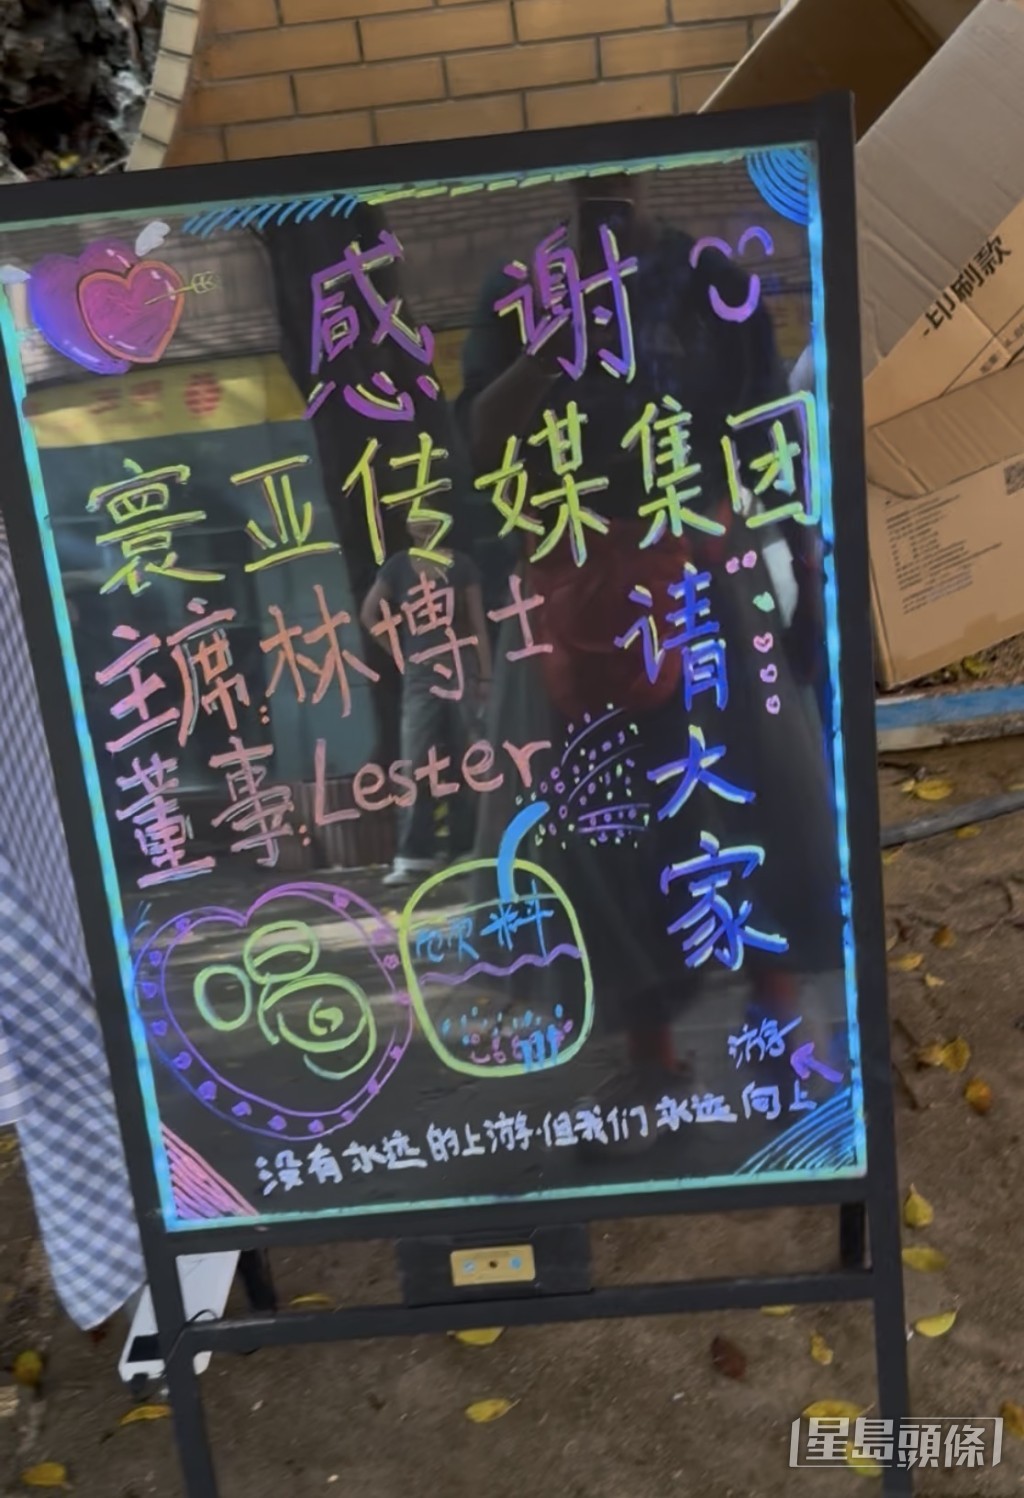 感谢
寰亚传媒集团
主席:林博士
董事:Lester
请大家
喝
饮料
没有永远的上游·但我们永远向上游
-印刷款
星島頭條